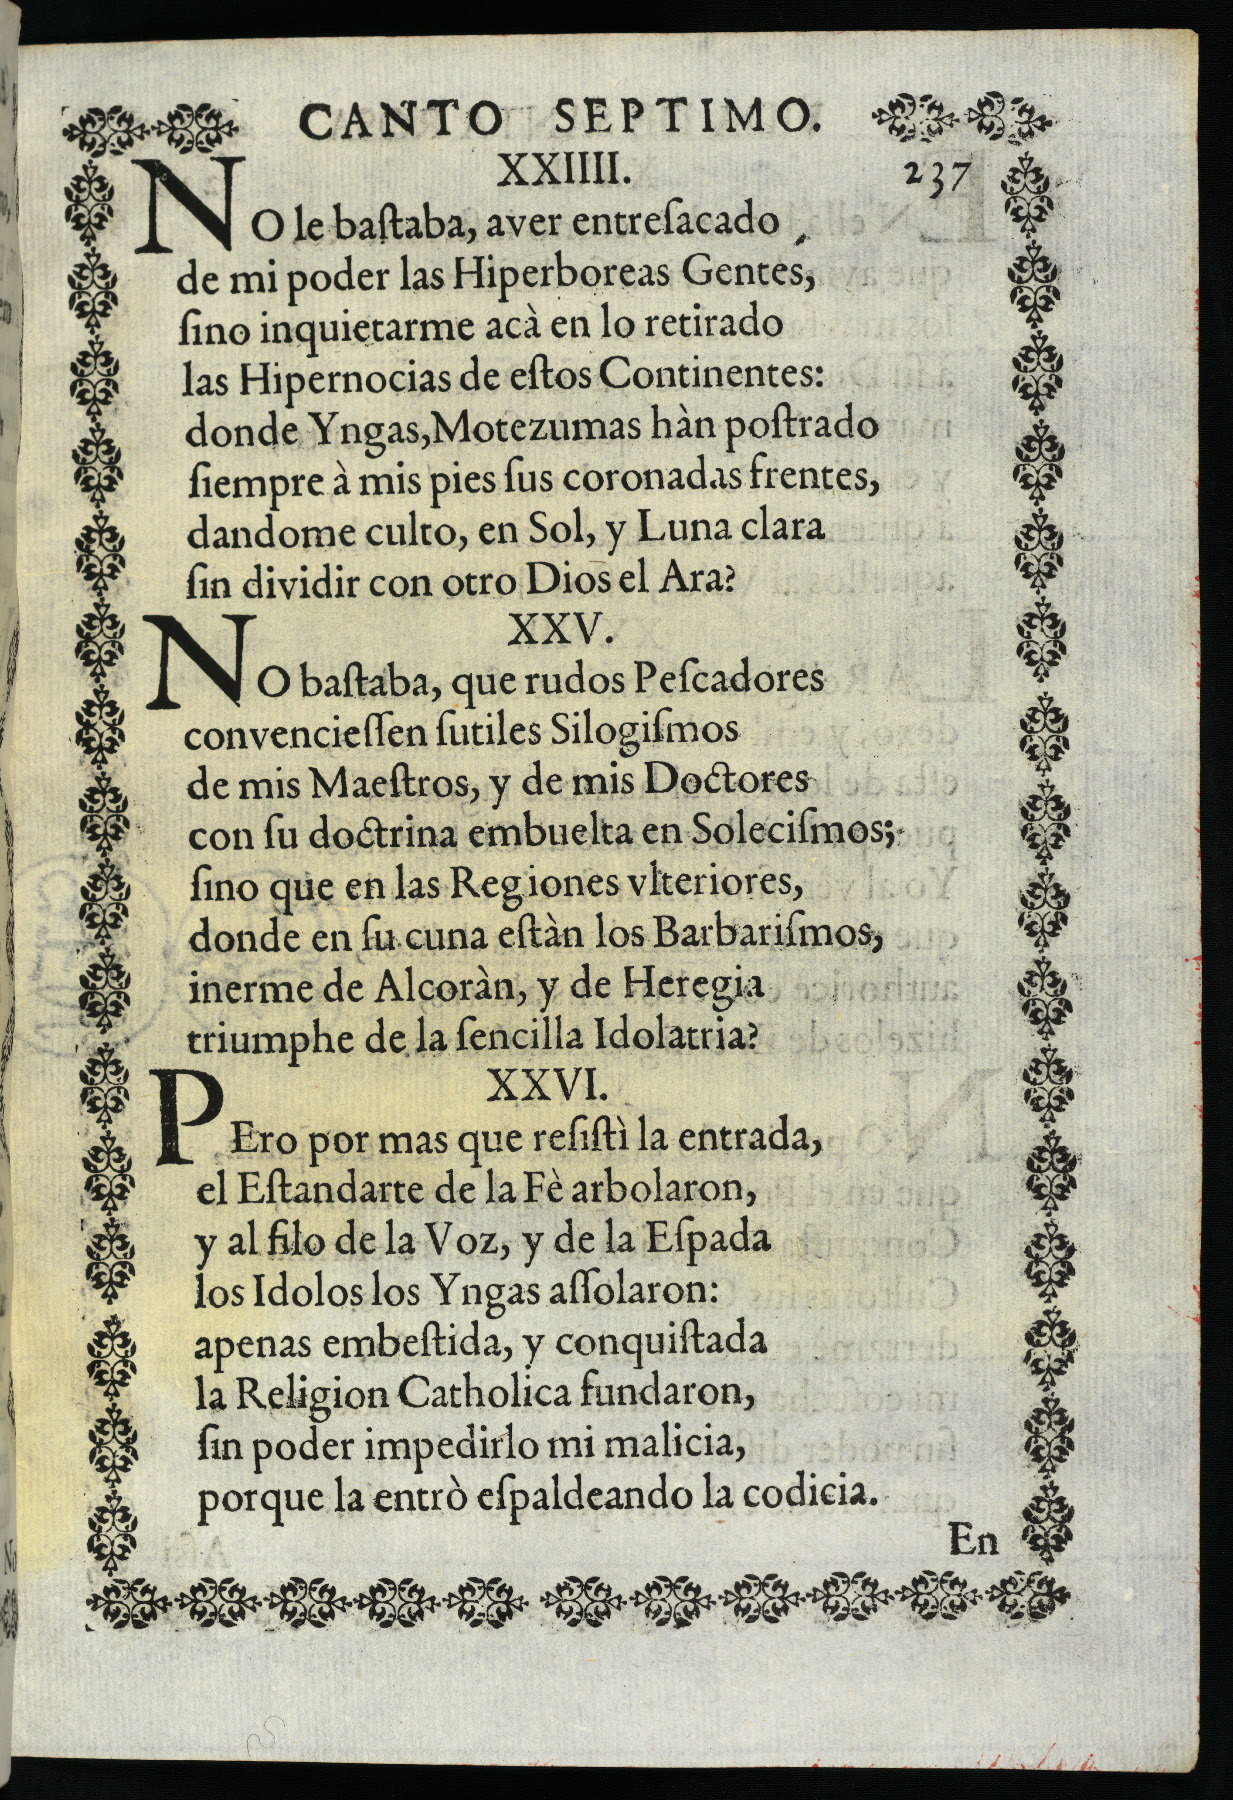 CANTO SEPTIMO.
XXIIII. 237
NO le baſtaba, aver entreſacado
de mi poder las Hiperboreas Gentes,
ſino inquietarme acà en lo retirado
las Hipernocias de eſtos Continentes:
donde Yngas,Motezumas hàn poſtrado
ſiempre à mis pies ſus coronadas frentes,
dandome culto, en Sol, y Luna clara
ſin dividir con otro Dios el Ara?
XXV.
NO baſtaba, que rudos Peſcadores
convencieſſen ſutiles Silogiſmos
de mis Maeſtros, y de mis Doctores
con ſu doctrina embuelta en Soleciſmos;
ſino que en las Regiones vlteriores,
donde en ſu cuna eſtàn los Barbariſmos,
inerme de Alcoràn, y de Heregia
triumphe de la ſencilla Idolatria?
XXVI.
PEro por mas que reſiſtì la entrada,
el Eſtandarte de la Fè arbolaron,
y al filo de la Voz, y de la Eſpada
los Idolos los Yngas aſſolaron:
apenas embeſtida, y conquiſtada
la Religion Catholica fundaron,
ſin poder impedirlo mi malicia,
porque la entrò eſpaldeando la codicia.
En